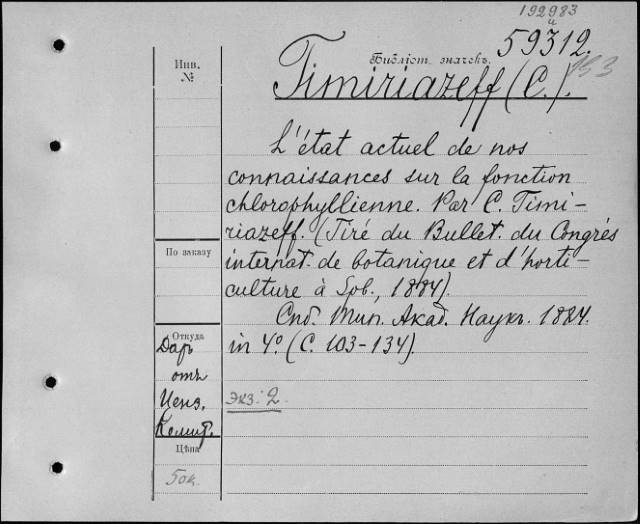 192983
и
59312.
Инв.
№
Библіот. значекъ.
153
Timiriazeff (C.).
L'état actuel de nos
connaissances sur la fonction
chlorophyllienne. Par C. Timi-
riazeff. (Tiré du Bullet. du Congrès
По заказу
internat. de botanique et d'horti-
culture à Spb., 1884).
Спб. Тип. Акад. Наукъ. 1884.
Откуда
Даръ
отъ
Ценз.
Комит.
in 4º. (C. 103-134).
экз: 2.
Цѣна
50к.